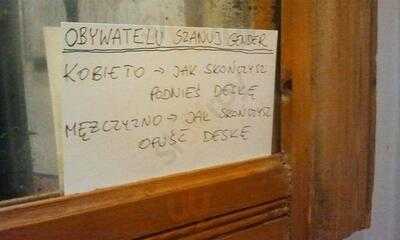 OBYWATELU SZANUJ GENDER
KOBIETO → JAK SKOŃCZYSZ
PODNIEŚ DESKĘ
MĘŻCZYZNO → JAK SKOŃCZYSZ
OPUŚĆ DESKĘ